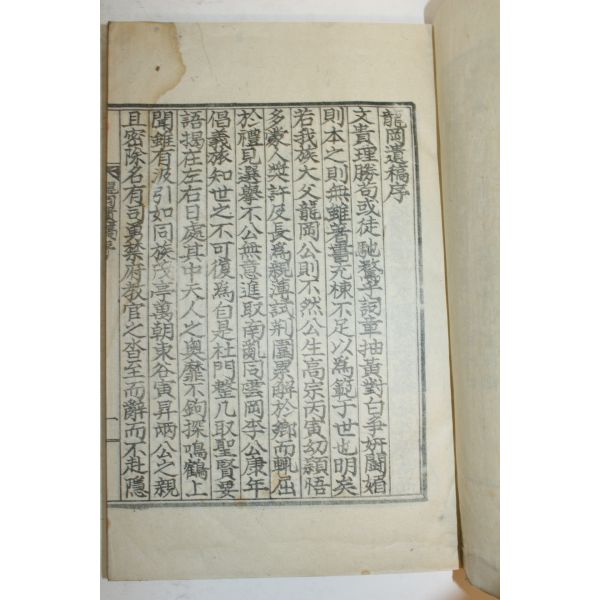 龍岡遺稿序
文貴理勝苟或徒馳騖乎詞章抽黃對白爭姸鬪媚
則本之則無雖著書充棟不足以爲範于世也明矣
若我族大父龍岡公則不然公生高宗丙寅幼穎悟
多蒙人奬許及長爲親薄試荊圍累解於鄕而輒屈
於禮見選擧不公無意進取南亂同雲岡李公康年
倡義旅知世之不可復爲自是杜門整几取聖賢要
語揭在左右日處其中天人之奧靡不鉤探鳴鶴上
聞雖有汲引如同族茂亭萬朝東谷寅昇兩公之親
且密除名有司勇禁府敎官之沓至而辭而不赴隱
龍岡遺稿序
一